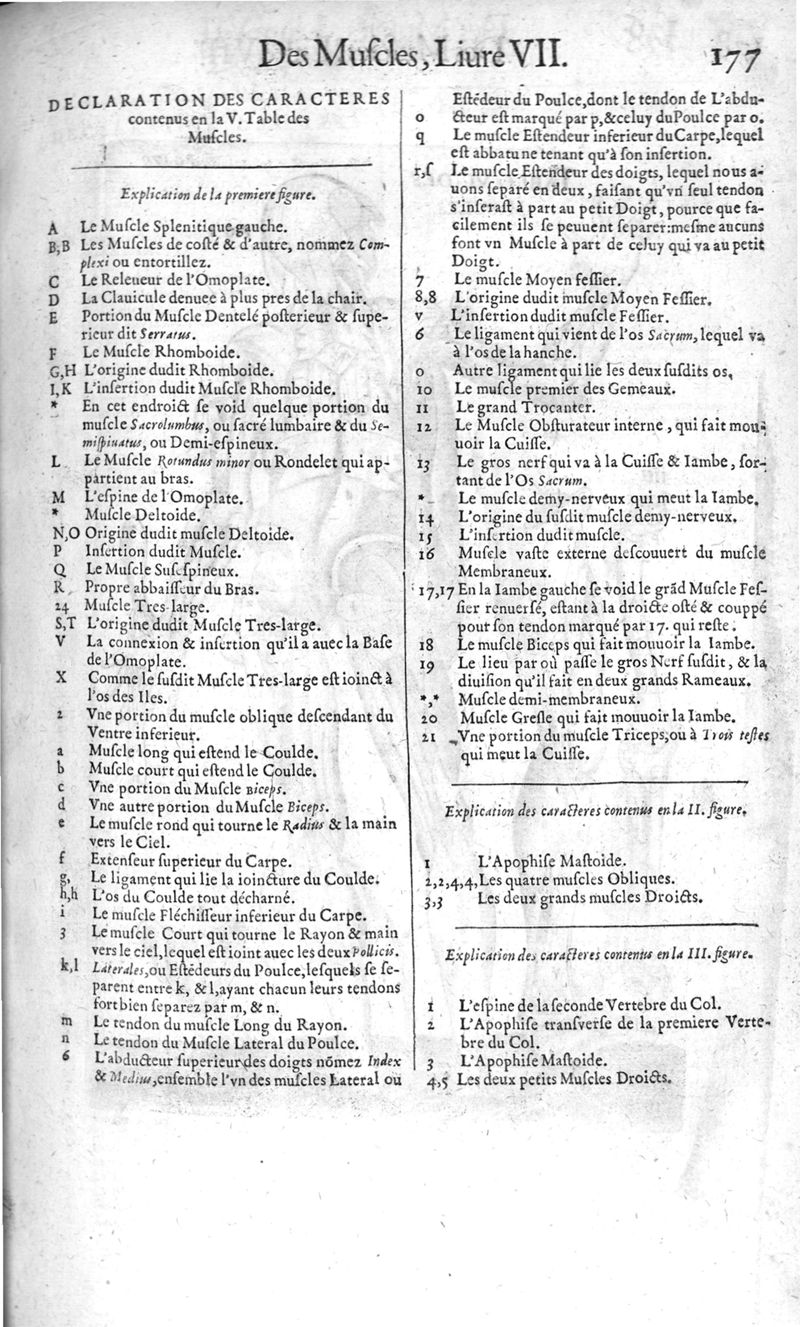 Des Muſcles, Liure VII. 177
DECLARATION DES CARACTERES
contenus en la V. Table des
Muſcles.
Explication de la premiere figure.
A Le Muſcle Splenitique gauche.
B,B Les Muſcles de coſté & d'autre, nommez Com-
plexi ou entortillez.
C Le Releueur de l'Omoplate.
D La Clauicule denuee à plus pres de la chair.
E Portion du Muſcle Dentelé poſterieur & ſupe-
rieur dit Serratus.
F Le Muſcle Rhomboide.
G,H L'origine dudit Rhomboide.
I,K L'inſertion dudit Muſcle Rhomboide.
* En cet endroict ſe void quelque portion du
muſcle Sacrolumbus, ou ſacré lumbaire & du Se-
miſpiuatus, ou Demi-eſpineux.
L Le Muſcle Rotundus minor ou Rondelet qui ap-
partient au bras.
M L'eſpine de l'Omoplate.
* Muſcle Deltoide.
N,O Origine dudit muſcle Deltoide.
P Inſertion dudit Muſcle.
Q Le Muſcle Suſeſpineux.
R Propre abbaiſſeur du Bras.
24 Muſcle Tres-large.
S,T L'origine dudit Muſcle Tres-large.
V La connexion & inſertion qu'il a auec la Baſe
de l'Omoplate.
X Comme le ſuſdit Muſcle Tres-large eſt ioinct à
l'os des Iles.
2 Vne portion du muſcle oblique deſcendant du
Ventre inferieur.
a Muſcle long qui eſtend le Coulde.
b Muſcle court qui eſtend le Coulde.
c Vne portion du Muſcle Biceps.
d Vne autre portion du Muſcle Biceps.
e Le muſcle rond qui tourne le Radius & la main
vers le Ciel.
f Extenſeur ſuperieur du Carpe.
g, Le ligament qui lie la ioincture du Coulde.
h,h L'os du Coulde tout décharné.
i Le muſcle Fléchiſſeur inferieur du Carpe.
3 Le muſcle Court qui tourne le Rayon & main
vers le ciel, lequel eſt ioint auec les deux Pollicis.
k,l Laterales, ou Eſtẽdeurs du Poulce, leſquels ſe ſe-
parent entre k, & l, ayant chacun leurs tendons
fort bien ſeparez par m, & n.
m Le tendon du muſcle Long du Rayon.
n Le tendon du Muſcle Lateral du Poulce.
6 L'abducteur ſuperieur des doigts nõmez Index
& Medius, enſemble l'vn des muſcles Lateral ou
Eſtẽdeur du Poulce, dont le tendon de L'abdu-
o cteur eſt marqué par p, & celuy du Poulce par o.
q Le muſcle Eſtendeur inferieur du Carpe, lequel
eſt abbatu ne tenant qu'à ſon inſertion.
r,ſ Le muſcle Eſtendeur des doigts, lequel nous a-
uons ſeparé en deux, faiſant qu'vn ſeul tendon
s'inſeraſt à part au petit Doigt, pource que fa-
cilement ils ſe peuuent ſeparer: meſme aucuns
font vn Muſcle à part de celuy qui va au petit
Doigt.
7 Le muſcle Moyen feſſier.
8,8 L'origine dudit muſcle Moyen Feſſier.
v L'inſertion dudit muſcle Feſſier.
6 Le ligament qui vient de l'os Sacrum, lequel va
à l'os de la hanche.
o Autre ligament qui lie les deux ſuſdits os.
10 Le muſcle premier des Gemeaux.
11 Le grand Trocanter.
12 Le Muſcle Obſturateur interne, qui fait mou-
uoir la Cuiſſe.
13 Le gros nerf qui va à la Cuiſſe & Iambe, ſor-
tant de l'Os Sacrum.
* Le muſcle demy-nerveux qui meut la Iambe.
14 L'origine du ſuſdit muſcle demy-nerveux.
15 L'inſertion dudit muſcle.
16 Muſcle vaſte externe deſcouuert du muſcle
Membraneux.
17,17 En la Iambe gauche ſe void le grãd Muſcle Feſ-
ſier renuerſé, eſtant à la droicte oſté & couppé
pour ſon tendon marqué par 17. qui reſte.
18 Le muſcle Biceps qui fait mouuoir la Iambe.
19 Le lieu par où paſſe le gros Nerf ſuſdit, & la
diuiſion qu'il fait en deux grands Rameaux.
*,* Muſcle demi-membraneux.
20 Muſcle Greſle qui fait mouuoir la Iambe.
21 Vne portion du muſcle Triceps, ou à Trois teſtes
qui meut la Cuiſſe.
Explication des caracteres contenus en la II. figure.
1 L'Apophiſe Maſtoide.
2,2,4,4, Les quatre muſcles Obliques.
3,3 Les deux grands muſcles Droicts.
Explication des caracteres contenus en la III. figure.
1 L'eſpine de la ſeconde Vertebre du Col.
2 L'Apophiſe tranſverſe de la premiere Verte-
bre du Col.
3 L'Apophiſe Maſtoide.
4,5 Les deux petits Muſcles Droicts.